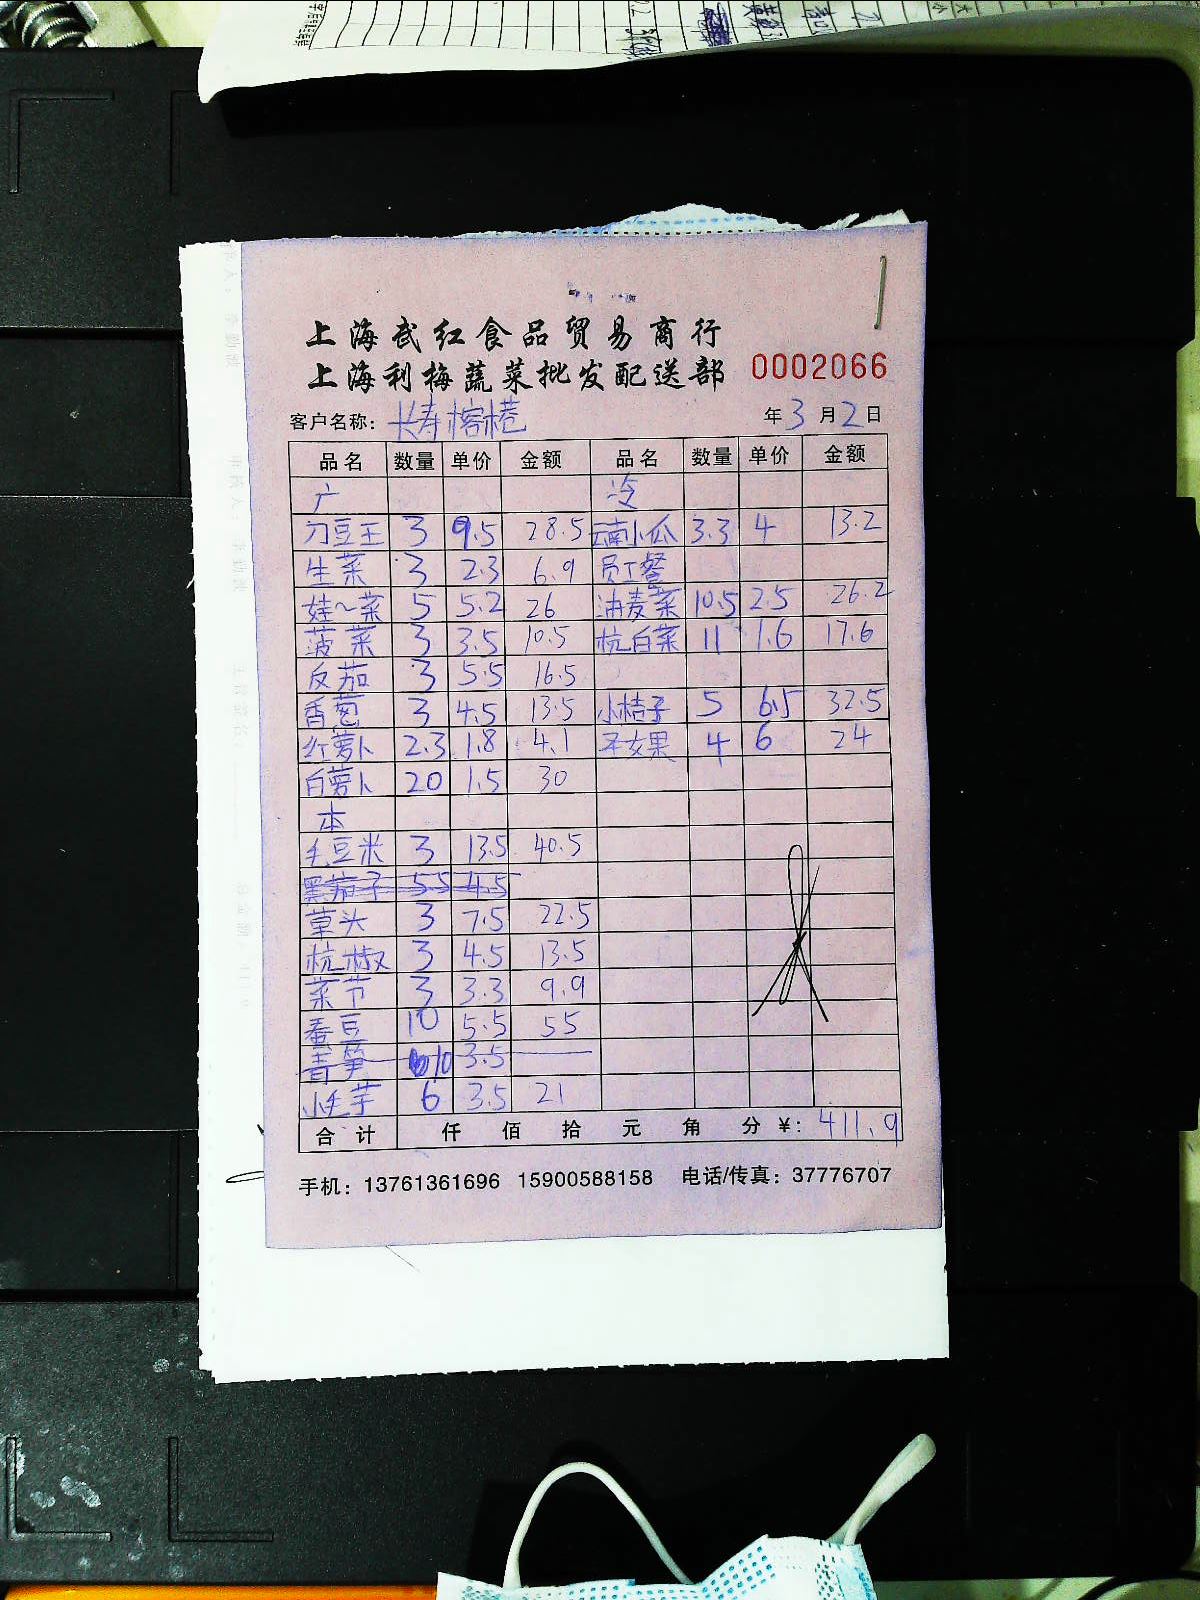 上海武红食品贸易商行
上海利梅蔬菜批发配送部 0002066
客户名称: 长寿榕巷 年3月2日
品名 数量 单价 金额 品名 数量 单价 金额
广 冷
刀豆王 3 9.5 28.5 云南小瓜 3.3 4 13.2
生菜 3 2.3 6.9 员工餐
娃~菜 5 5.2 26 油麦菜 10.5 2.5 26.2
菠菜 3 3.5 10.5 杭白菜 11 1.6 17.6
反茄 3 5.5 16.5
香葱 3 4.5 13.5 小桔子 5 6.5 32.5
红萝卜 2.3 1.8 4.1 子女果 4 6 24
白萝卜 20 1.5 30
本
毛豆米 3 13.5 40.5
黑茄子 55 4.5
草头 3 7.5 22.5
杭椒 3 4.5 13.5
菜节 3 3.3 9.9
蚕豆 10 5.5 55
青笋 10 3.5
小毛芋 6 3.5 21
合计 仟 佰 拾 元 角 分 ¥: 411.9
手机: 13761361696 15900588158 电话/传真: 37776707